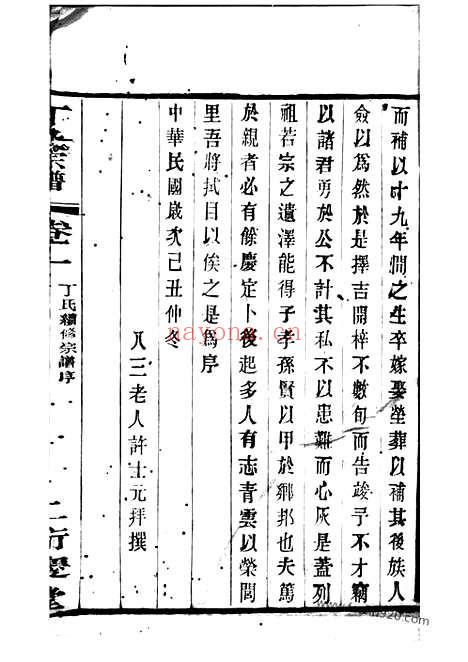 而補以廿九年間之生卒嫁娶塋葬以補其後族人
僉以為然於是擇吉開梓不數旬而告竣予不才竊
以諸君勇於公不計其私不以患難而心灰是蓋列
祖若宗之遺澤能得子孝孫賢以甲於鄉邦也夫篤
於親者必有餘慶定卜後起多人有志青雲以榮閭
里吾將拭目以俟之是為序
中華民國歲次己丑仲冬
八三老人許士元拜撰
丁氏宗譜
卷一
丁氏續修宗譜序
nayona.cn